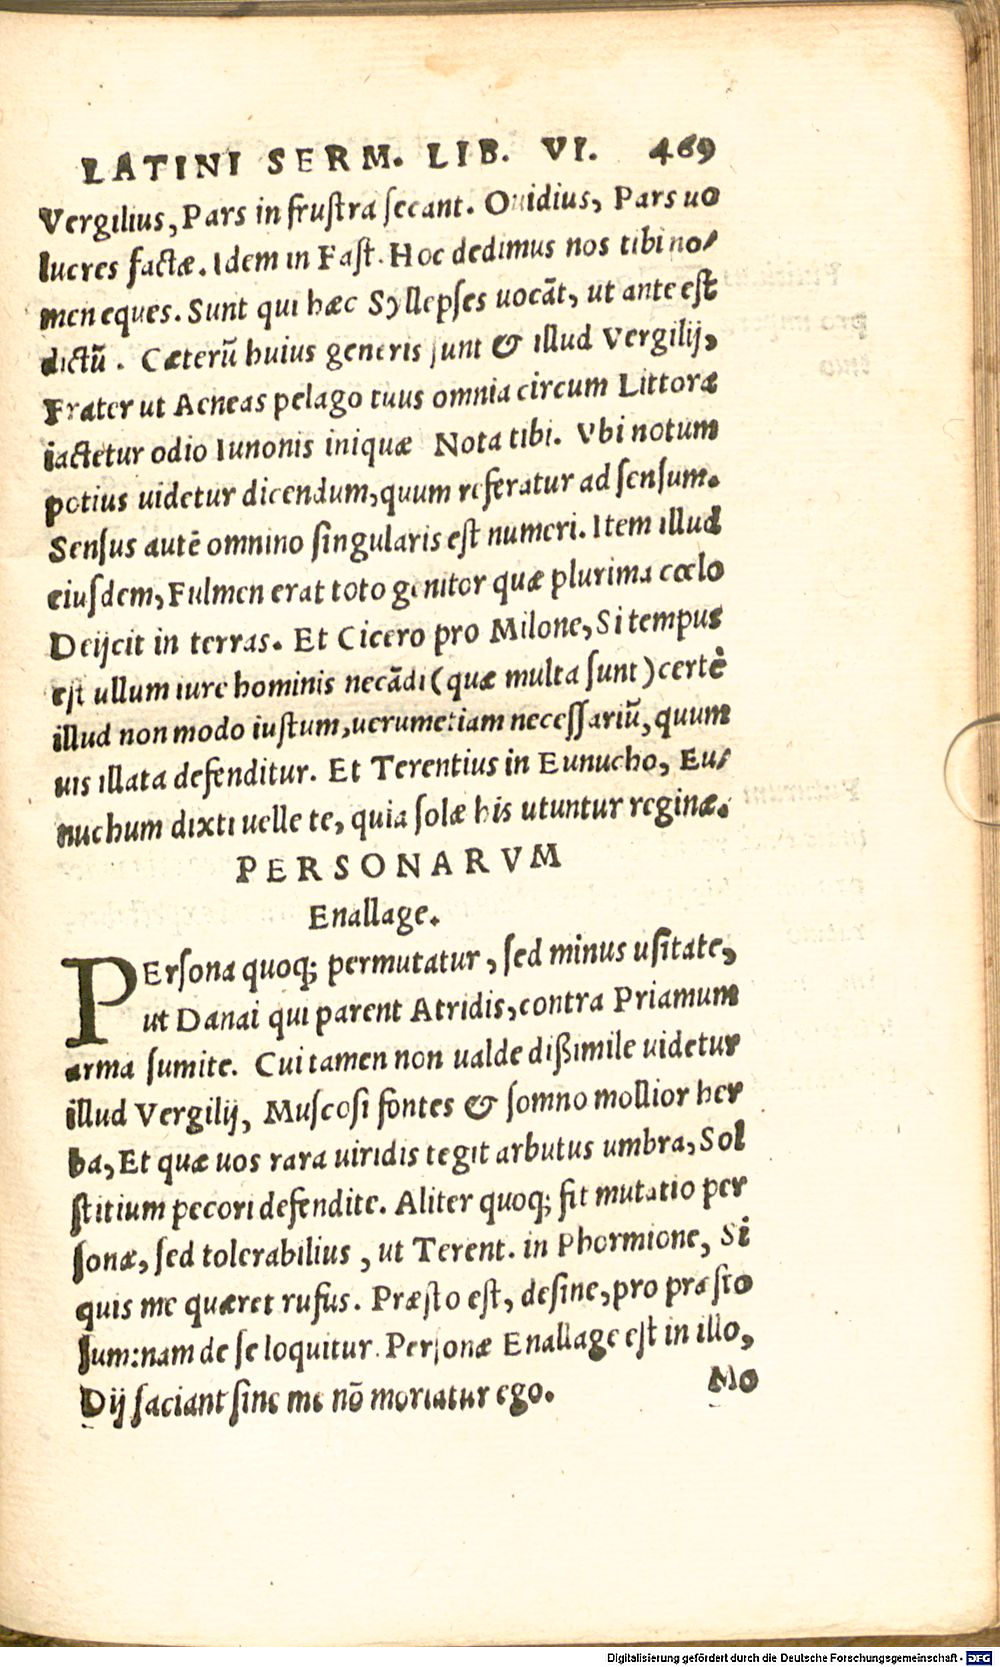 LATINI SERM. LIB. VI. 469
Vergilius, Pars in frustra secant. Ouidius, Pars uo
lucres factæ. Idem in Fast. Hoc dedimus nos tibi no/
men eques. Sunt qui hæc Syllepses uocãt, ut ante est
dictũ. Cæterũ huius generis sunt & illud Vergilij,
Frater ut Aeneas pelago tuus omnia circum Littora
iactetur odio Iunonis iniquæ Nota tibi. Vbi notum
potius uidetur dicendum, quum referatur ad sensum.
Sensus autẽ omnino singularis est numeri. Item illud
eiusdem, Fulmen erat toto genitor quæ plurima cœlo
Deijcit in terras. Et Cicero pro Milone, Si tempus
est ullum iure hominis necãdi (quæ multa sunt) certè
illud non modo iustum, uerumetiam necessariũ, quum
uis illata defenditur. Et Terentius in Eunucho, Eu/
nuchum dixti uelle te, quia solæ his utuntur reginæ.
PERSONARVM
Enallage.
PErsona quoq; permutatur, sed minus usitate,
ut Danai qui parent Atridis, contra Priamum
arma sumite. Cui tamen non ualde dißimile uidetur
illud Vergilij, Muscosi fontes & somno mollior her
ba, Et quæ uos rara uiridis tegit arbutus umbra, Sol
stitium pecori defendite. Aliter quoq; fit mutatio per
sonæ, sed tolerabilius, ut Terent. in Phormione, Si
quis me quæret rufus. Præsto est, desine, pro præsto
sum: nam de se loquitur. Personæ Enallage est in illo,
Dij faciant sine me nõ moriatur ego.
Mo
Digitalisierung gefördert durch die Deutsche Forschungsgemeinschaft - DFG